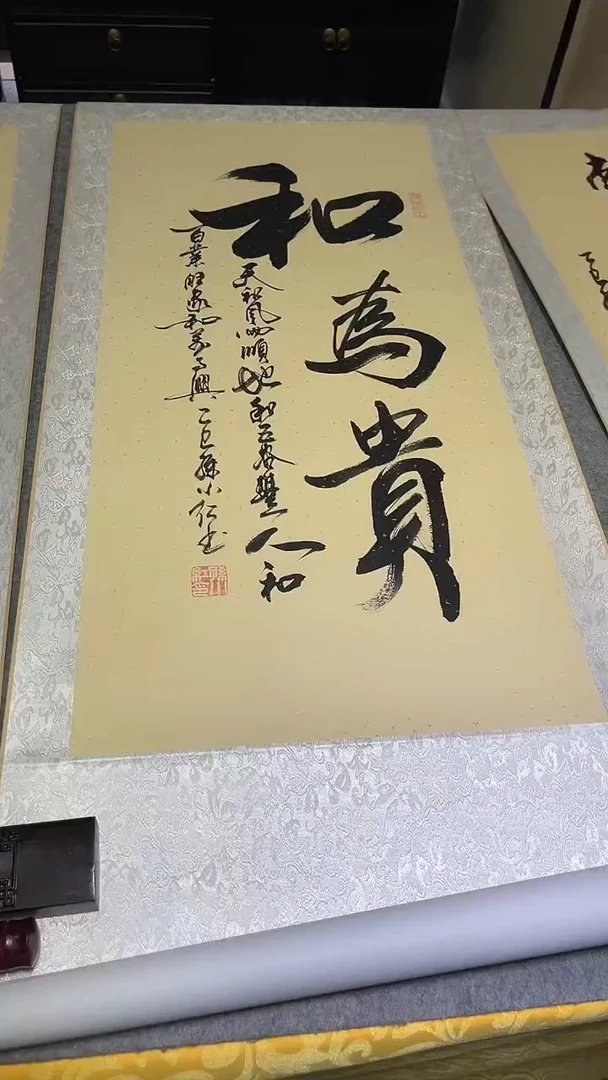 和為貴
天和風雨順地和五谷豐人和
百業旺家和萬事興乙巳孫小仁書